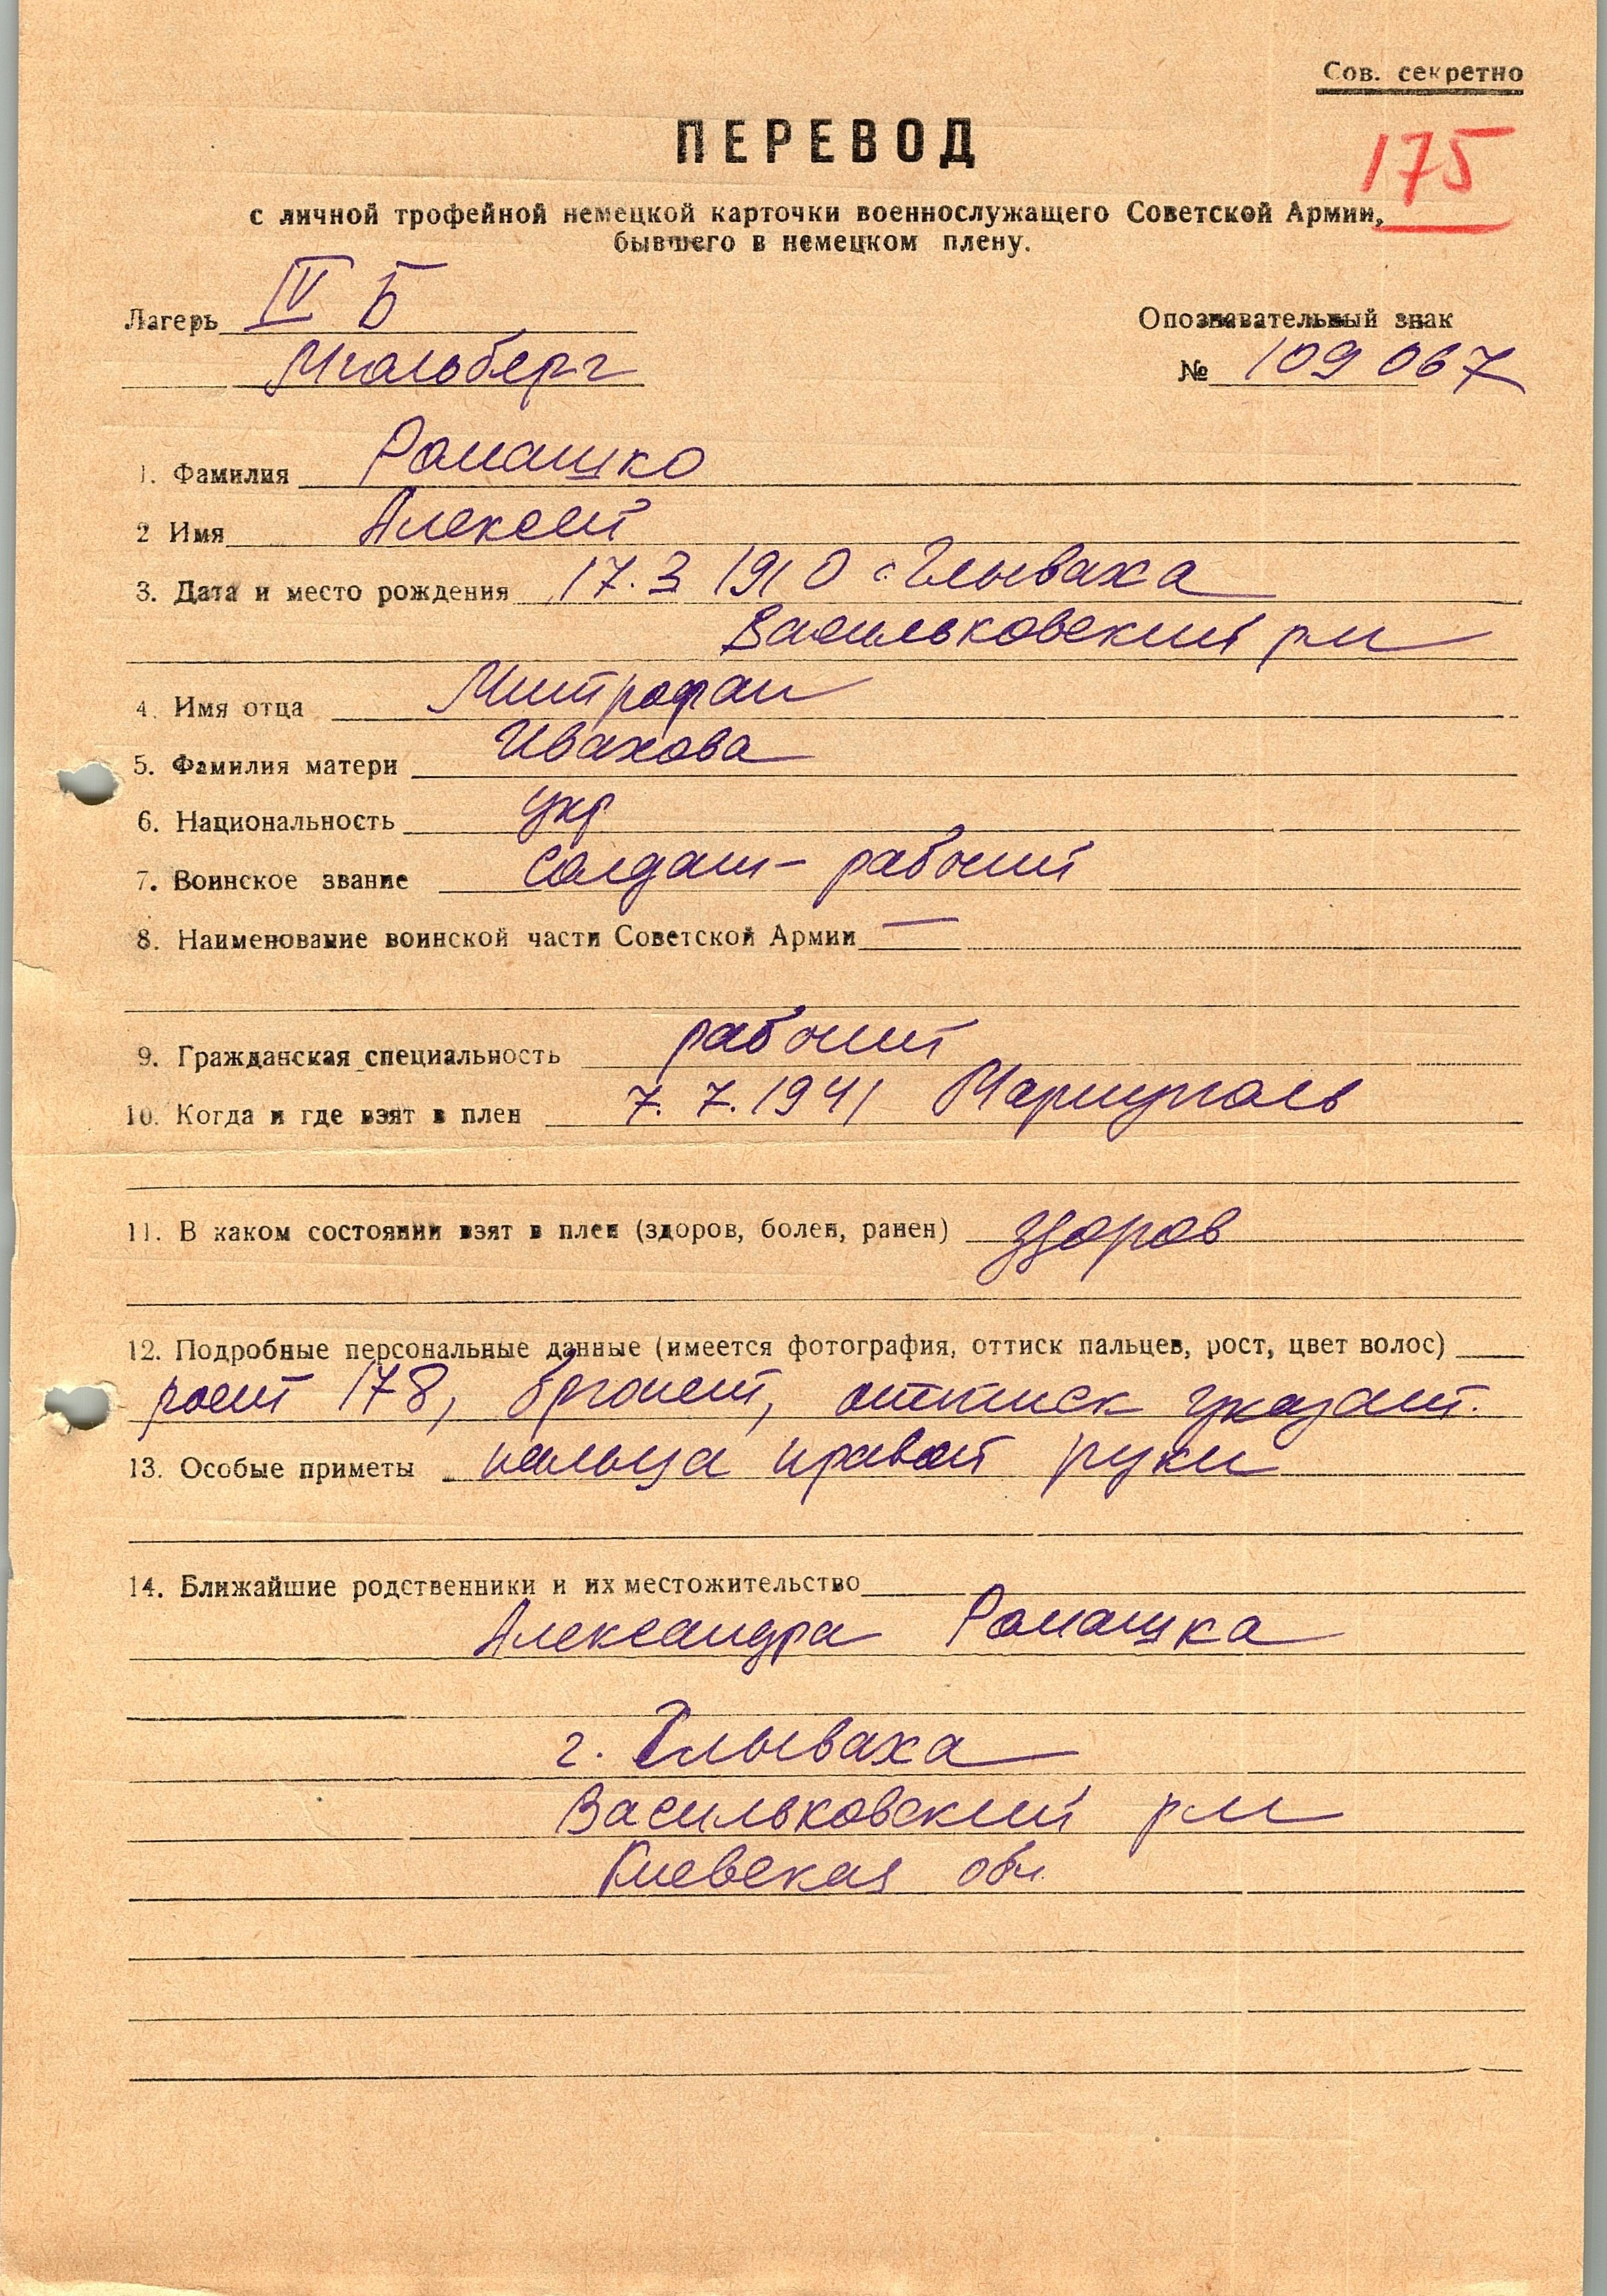 Сов. секретно
ПЕРЕВОД
175
с личной трофейной немецкой карточки военнослужащего Советской Армии,
бывшего в немецком плену.
Лагерь IV Б
Опознавательный знак
Мюльберг
№ 109 067
1. Фамилия Ромашко
2 Имя Алексей
3. Дата и место рождения 17.3 1910 с. Глываха
Васильковский рн
4. Имя отца Митрофан
5. Фамилия матери Ивахова
6. Национальность укр
7. Воинское звание Солдат - рабочий
8. Наименование воинской части Советской Армии —
9. Гражданская специальность рабочий
10. Когда и где взят в плен 7. 7. 1941 Мариуполь
11. В каком состоянии взят в плен (здоров, болен, ранен) здоров
12. Подробные персональные данные (имеется фотография, оттиск пальцев, рост, цвет волос)
рост 178, брюнет, оттиск указат.
13. Особые приметы пальца правой руки
14. Ближайшие родственники и их местожительство
Александра Ромашка
г. Глываха
Васильковский рн
Киевская обл.